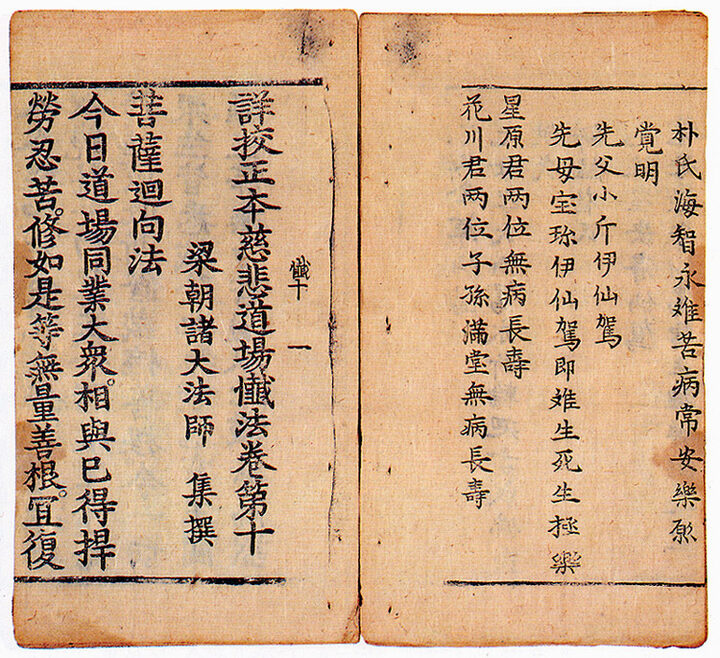 朴氏海智永难苦病常安樂
覚明
先父小斤伊仙駕
先母宝珎伊仙駕即难生死生極樂
星原君两位無病長壽
花川君两位子孫滿堂無病長壽
懺十 一
詳校正本慈悲道場懺法卷第十
梁朝諸大法師 集撰
菩薩迴向法
今日道場同業大衆。相與已得捍
勞忍苦。修如是等無量善根。冝復